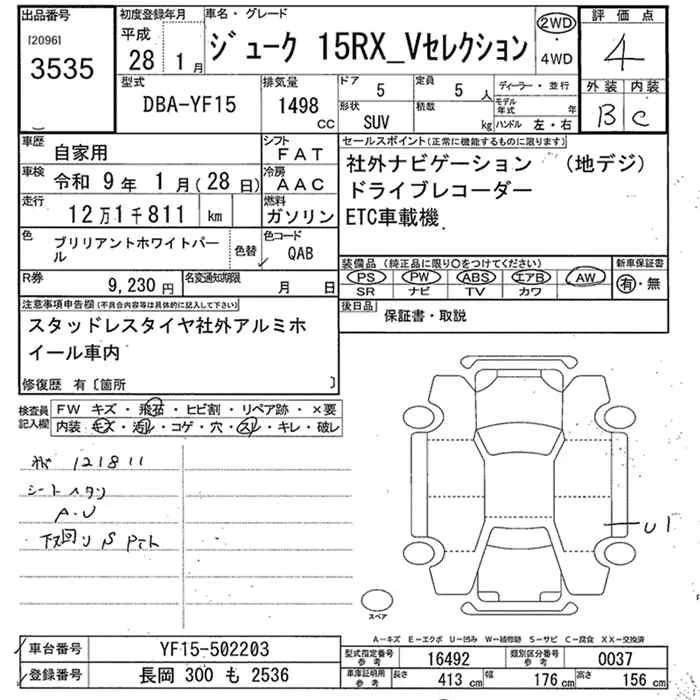 出品番号
[2096]
3535
初度登録年月
平成
28 1月
車名・グレード
ジューク 15RX_Vセレクション
2WD
・
4WD
評価点
4
外装 内装
B C
型式
DBA-YF15
排気量
1498
CC
ドア
5
定員
5 人
形状
SUV
積載
kg
ディーラー・並行
モデル年式 年
ハンドル 左・右
車歴
自家用
シフト
FAT
車検
令和 9年 1月(28日)
冷房
AAC
走行
12万1千811 km
燃料
ガソリン
色
ブリリアントホワイトパール
色替
色コード
QAB
R券
9,230円
名変通知期限
月 日
セールスポイント(正常に機能するものに限ります)
社外ナビゲーション (地デジ)
ドライブレコーダー
ETC車載機
装備品 (純正品に限り○をつけてください)
PS PW ABS エアB AW
SR ナビ TV カワ
新車保証書
有・無
後日品
保証書・取説
注意事項申告欄(不具合内容等は具体的に記入して下さい)
スタッドレスタイヤ社外アルミホ
イール車内
修復歴 有〔箇所 〕
検査員
記入欄
FW キズ・飛石・ヒビ割・リペア跡・×要
内装・キズ・汚れ・コゲ・穴・スレ・キレ・破レ
121811
シートヘタリ
A・U
下回りS
U1
スペア
A-キズ E-エクボ U-凹み W-補修跡 S-サビ C-腐食 XX-交換済
車台番号
YF15-502203
登録番号
長岡 300 も 2536
型式指定番号
参考
16492
類別区分番号
参考
0037
車庫証明用
参考
長さ
413 cm
幅
176 cm
高さ
156 cm